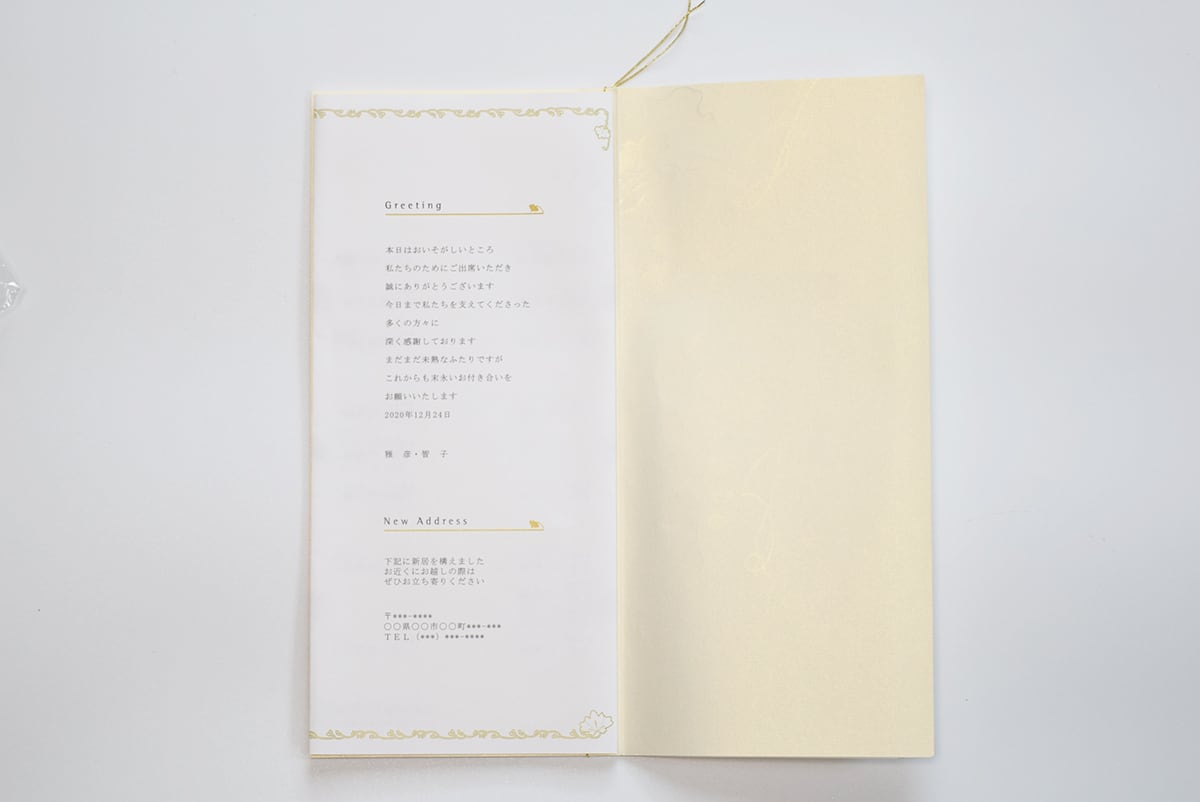 Greeting
本日はおいそがしいところ
私たちのためにご出席いただき
誠にありがとうございます
今日まで私たちを支えてくださった
多くの方々に
深く感謝しております
まだまだ未熟なふたりですが
これからも末永いお付き合いを
お願いいたします
2020年12月24日
雅　彦・智　子
New Address
下記に新居を構えました
お近くにお越しの際は
ぜひお立ち寄りください
〒***-****
○○県○○市○○町***-***
TEL（***）***-****